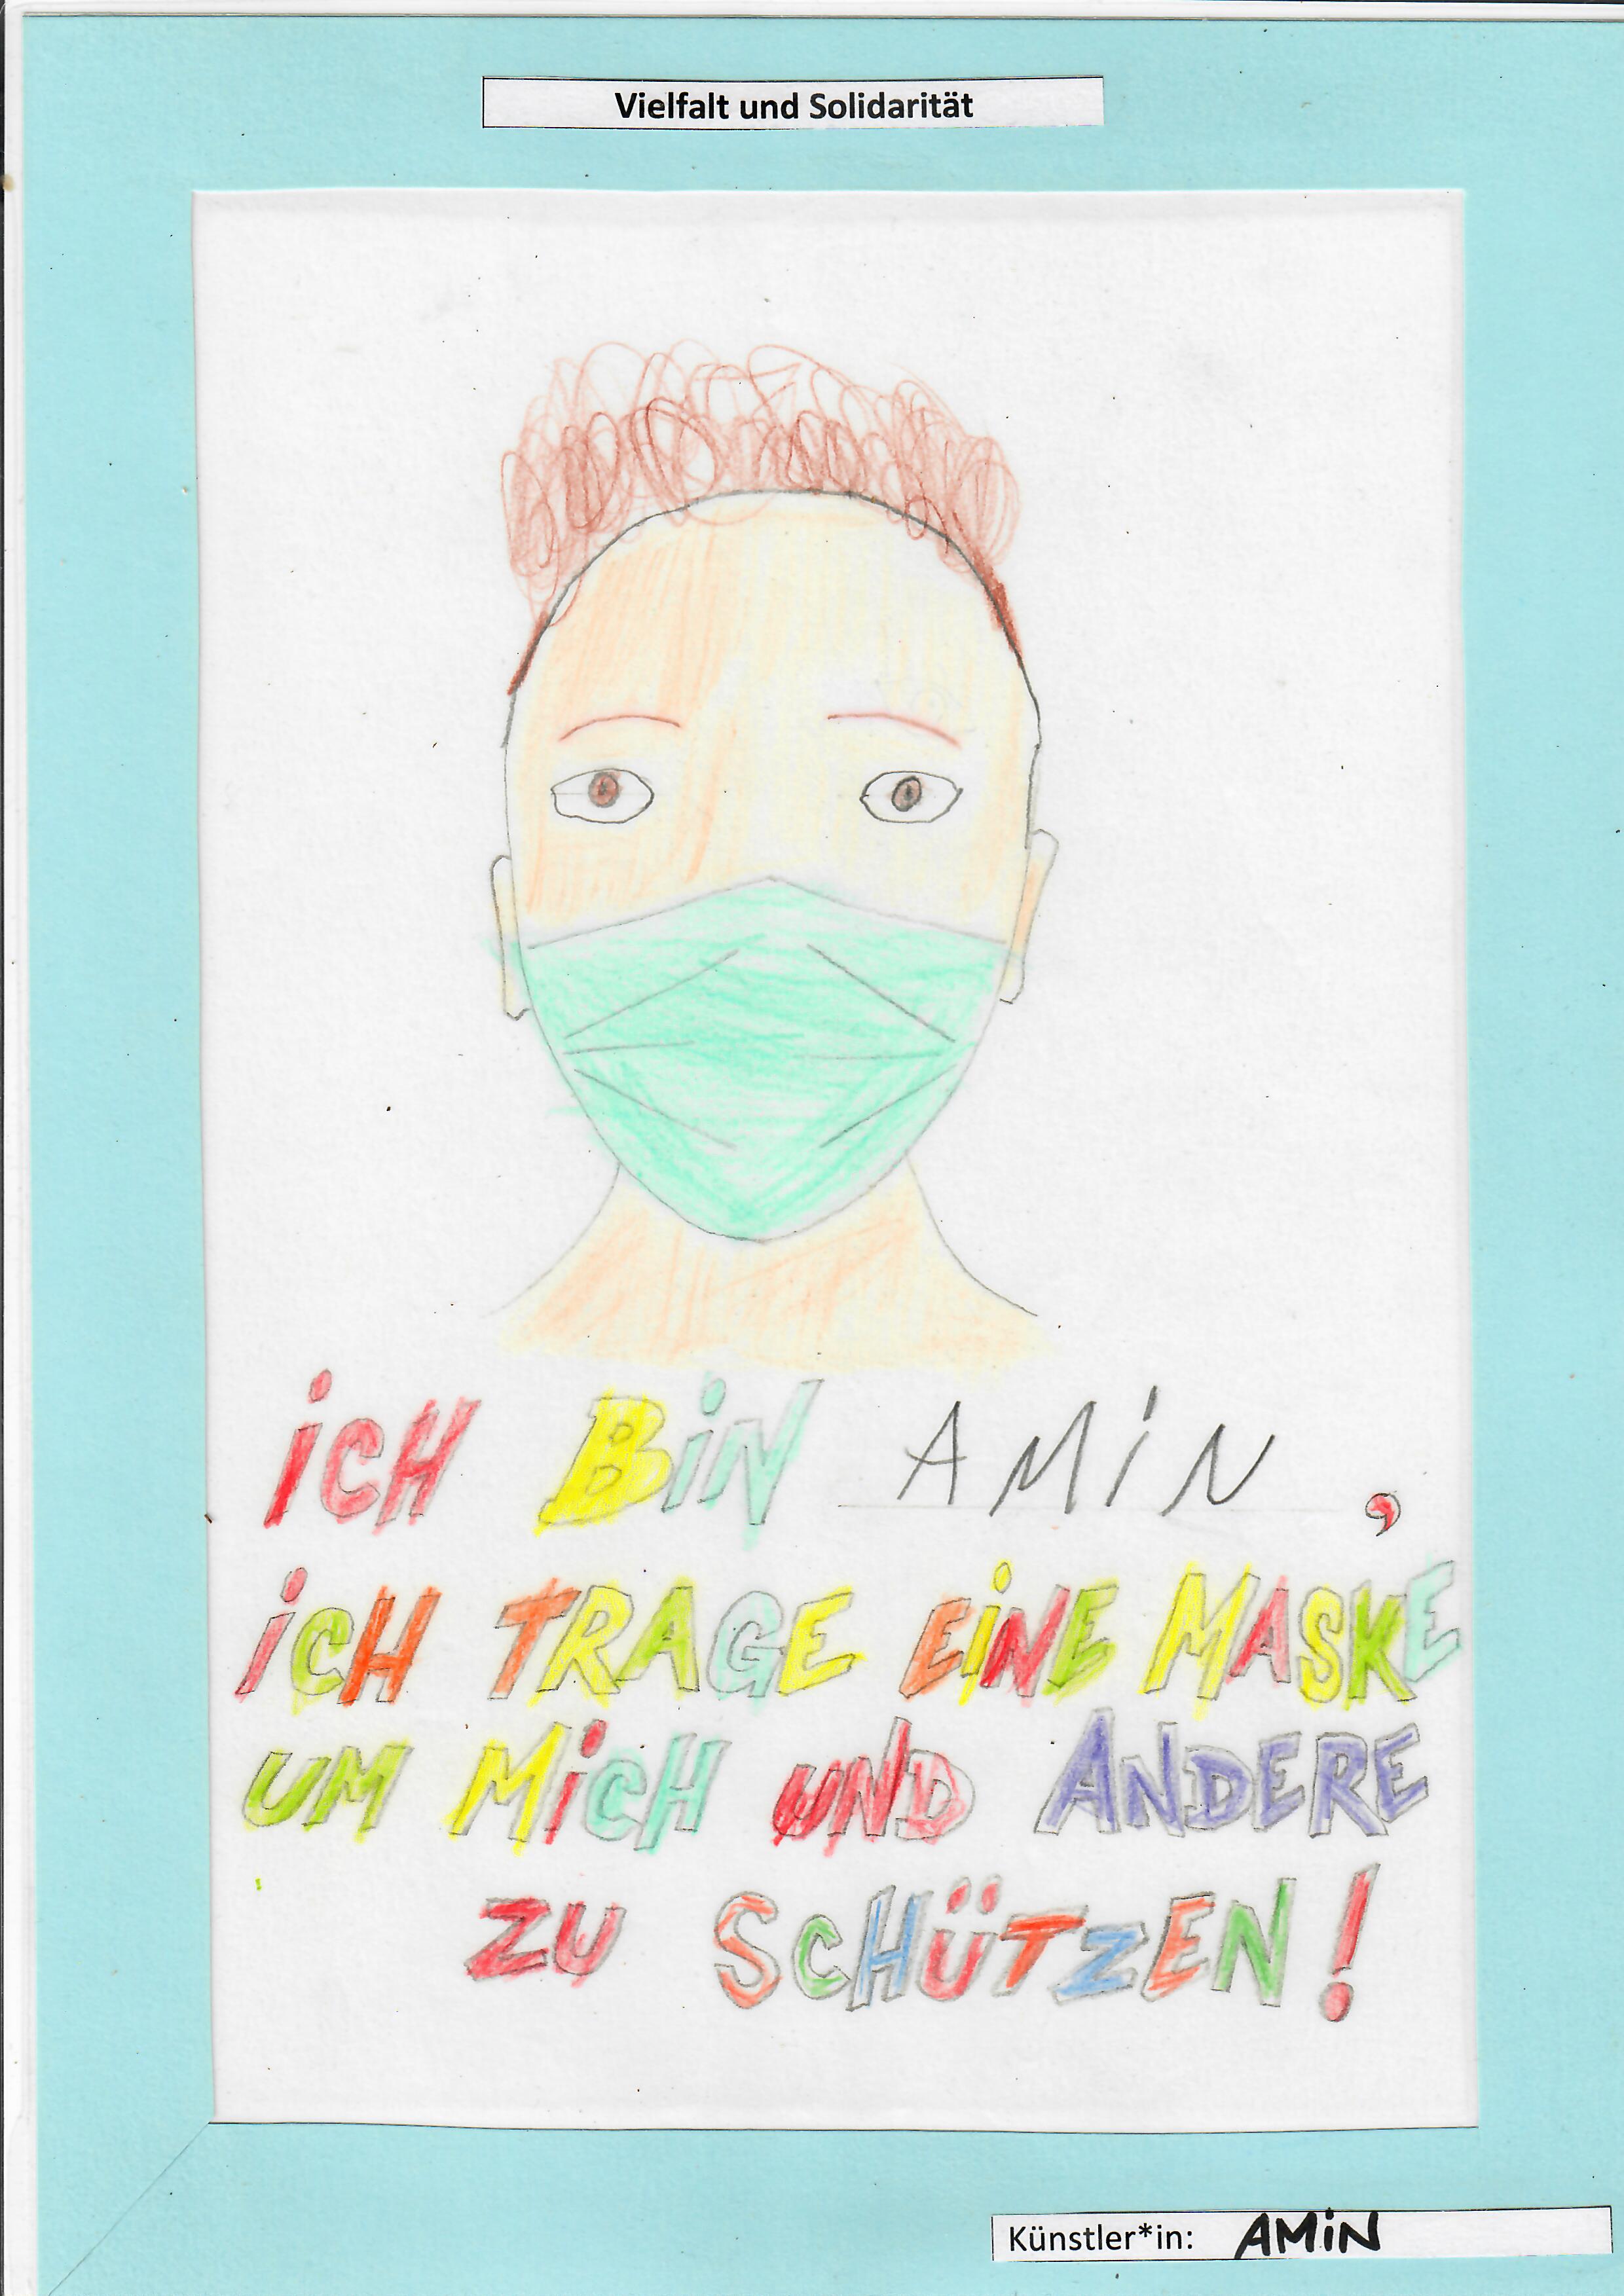 Vielfalt und Solidarität
iCH BiN AMiN,
iCH TRAGE EiNE MASKE
UM MiCH UND ANDERE
ZU SCHÜTZEN!
Künstler*in: AMiN